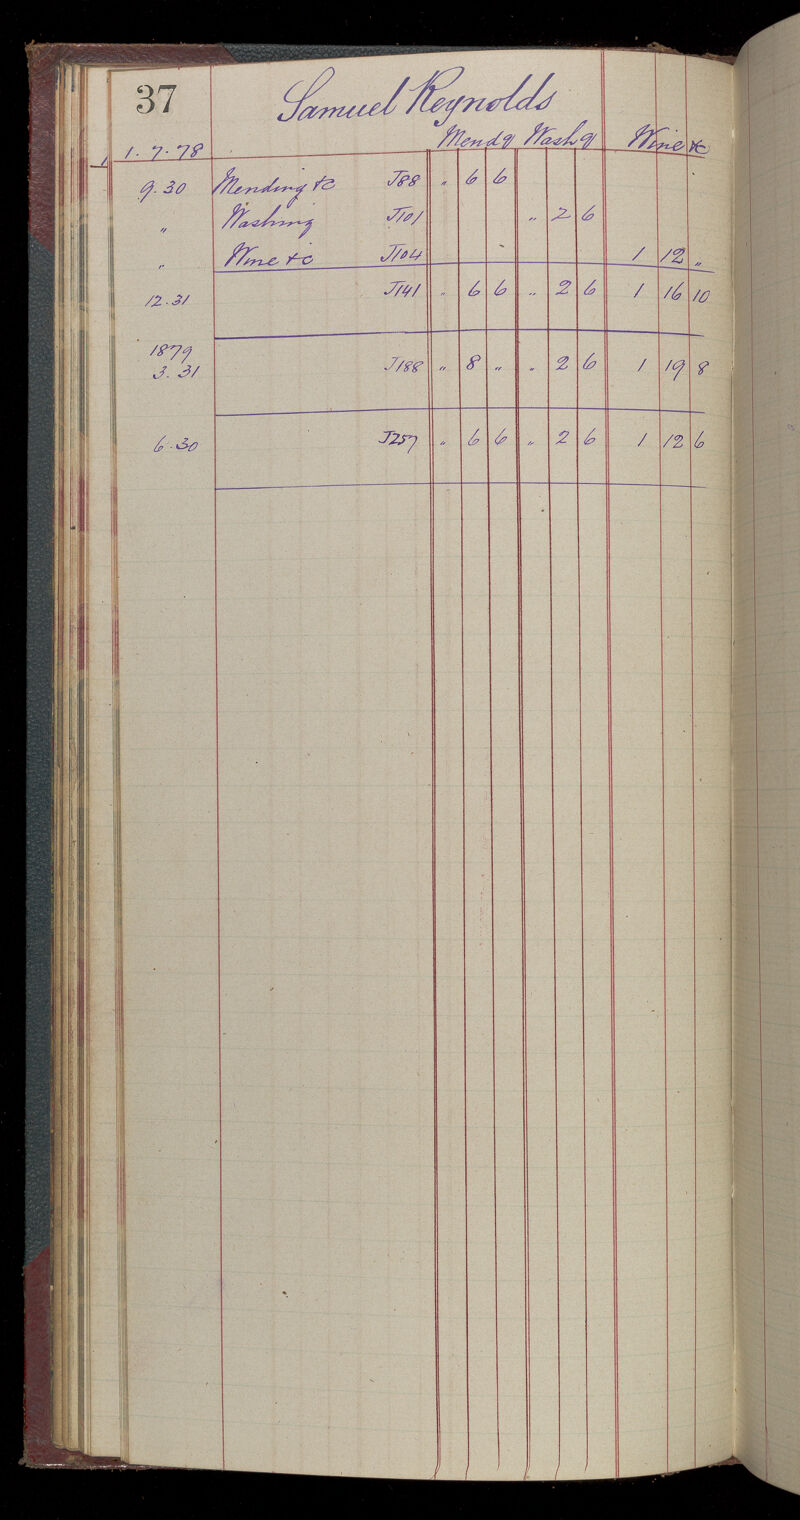 37 Samuel Reynolds
1.7.78 Mendg Washg Wine &c
9.30 Mending &c J88 " 6 6
" Washing J101 " 2 6
" Wine &c J104 1 12 "
12.31 J141 " 6 6 " 2 6 1 16 10
1879
3.31 J188 " 8 " " 2 6 1 19 8
6.30 J257 " 6 6 " 2 6 1 12 6